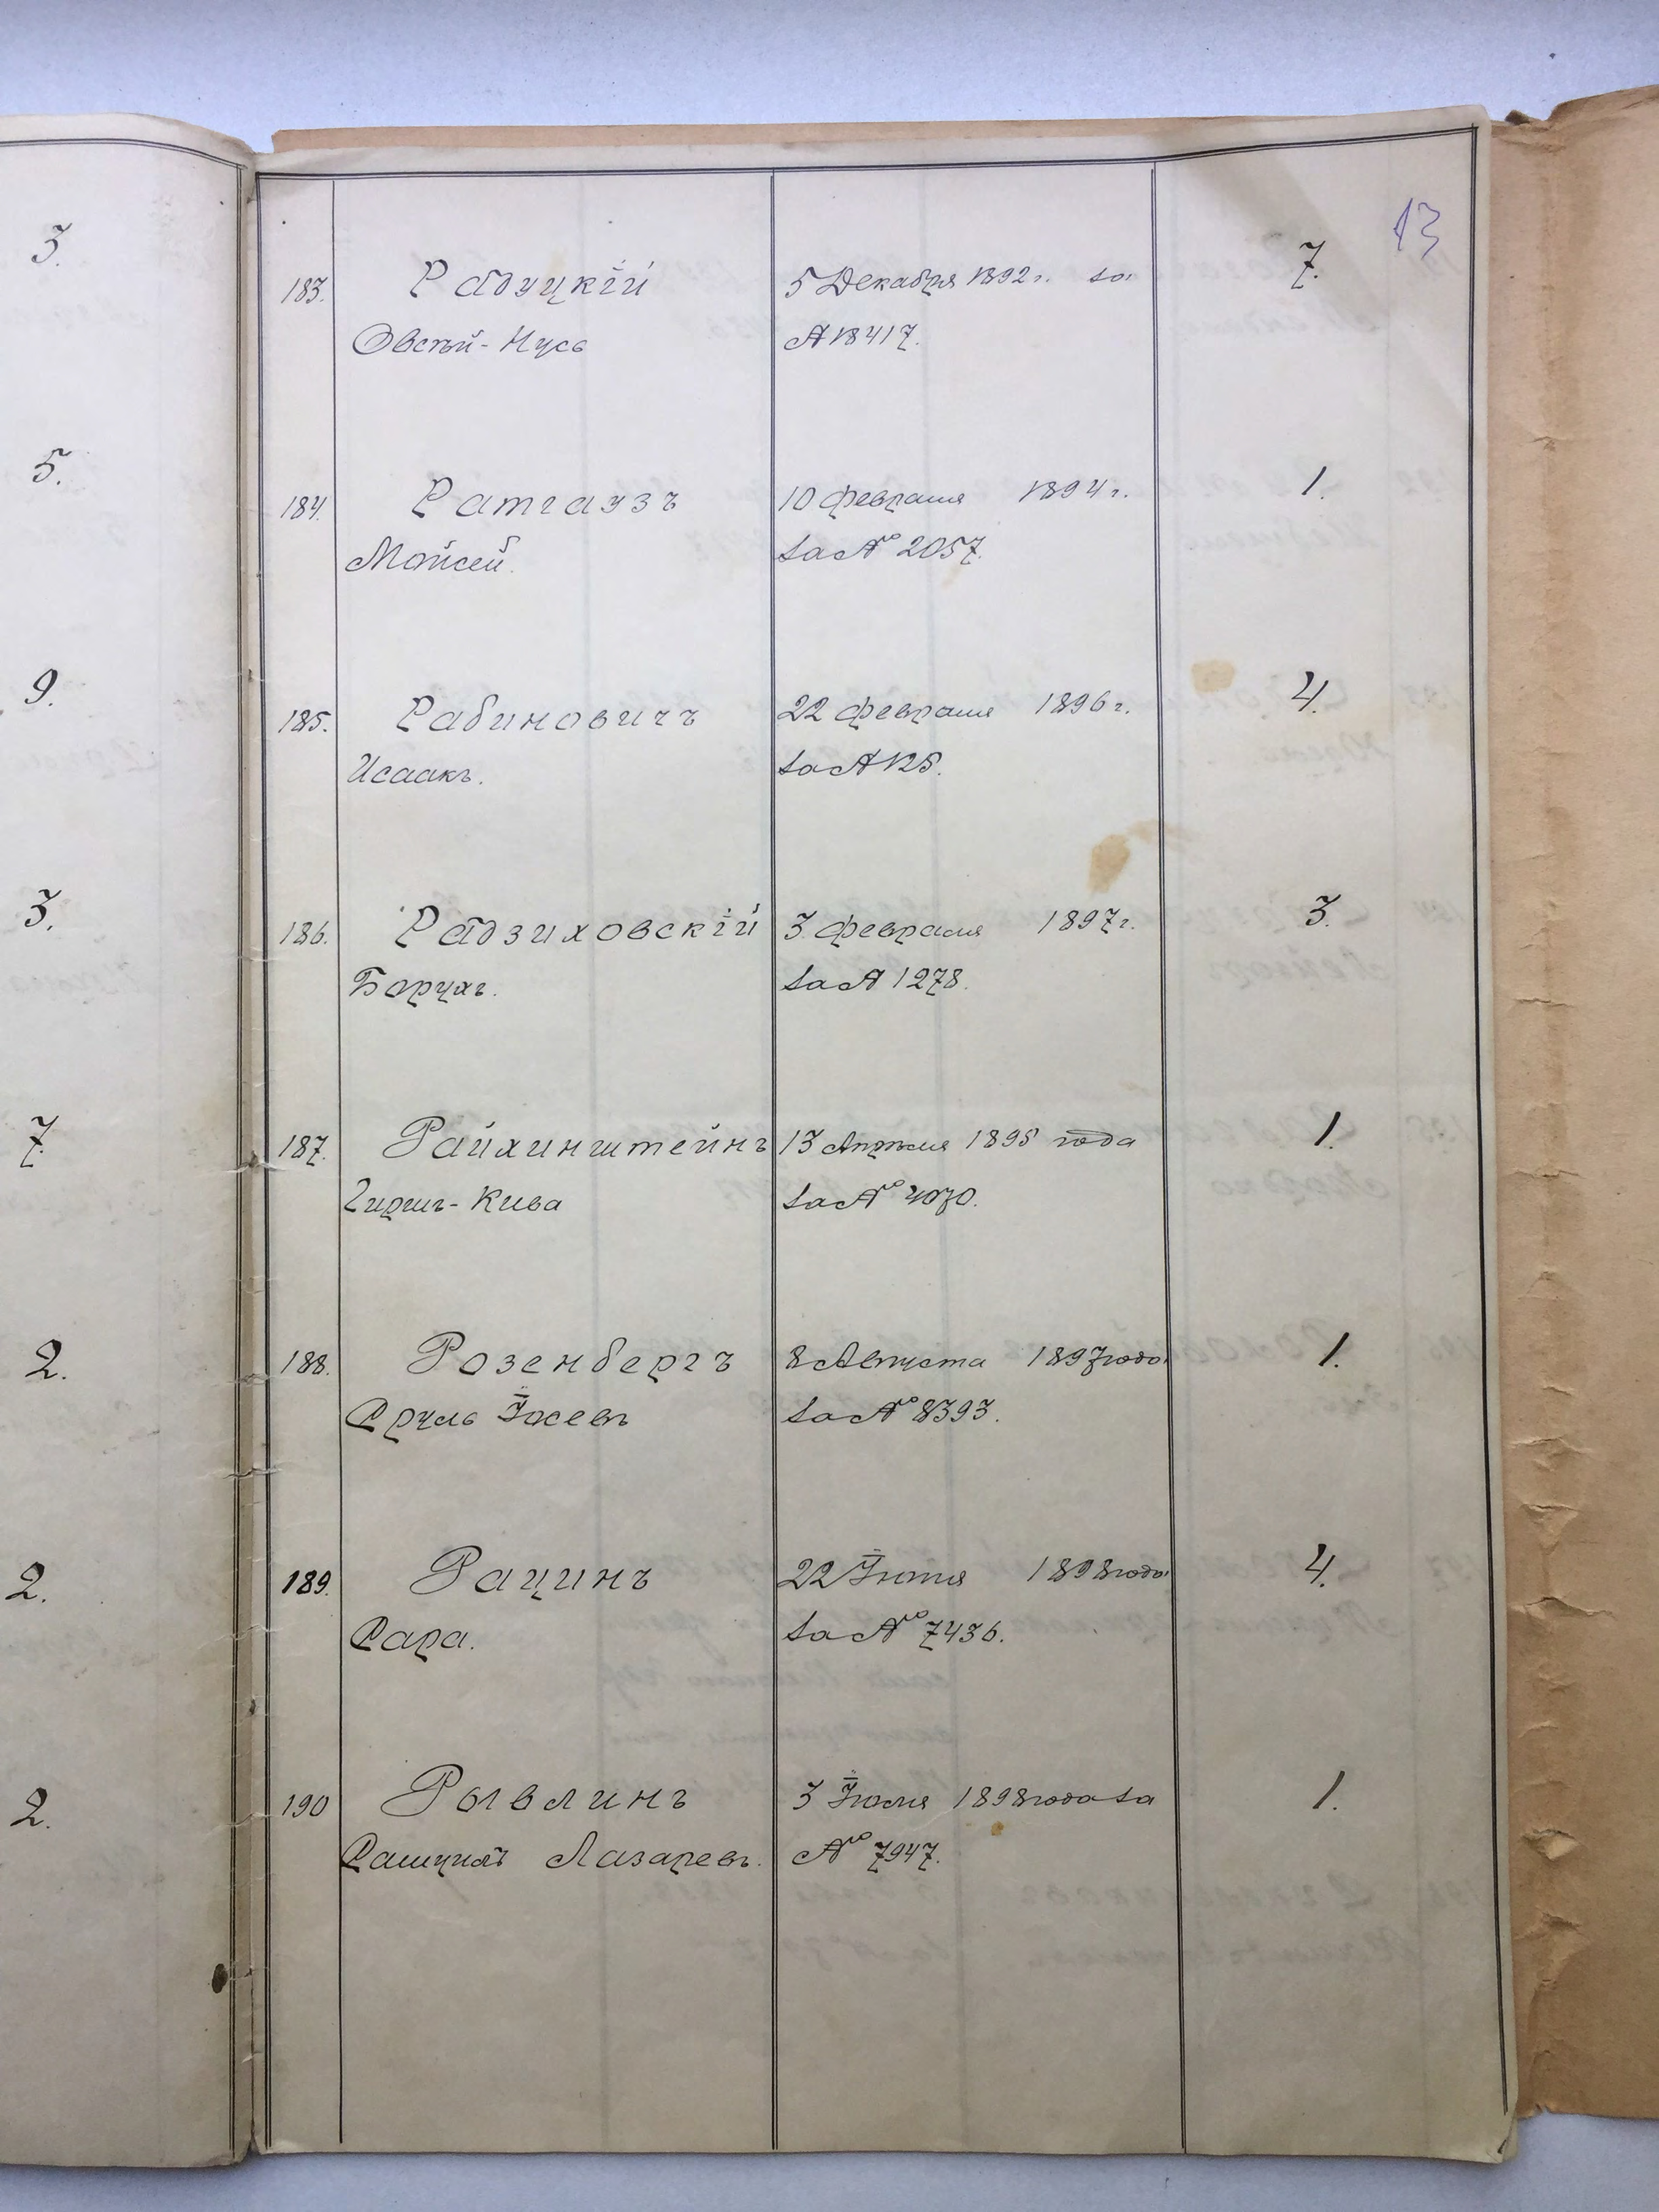 3.
5.
9.
3.
7.
2.
2.
2.
13
183. Радуцкій 5 Декабря 1892 г. за 7.
Овсѣй-Нусь № 18417.
184. Ратгаузъ 10 февраля 1894 г. 1.
Мойсей. за № 2057.
185. Рабиновичъ 22 февраля 1896 г. 4.
Исаакъ. за № 125.
186. Радзиховскій 3 февраля 1897 г. 3.
Борухъ. за № 1278.
187. Райхинштейнъ 13 Апрѣля 1895 года 1.
Гиршъ-Кива за № 4070.
188. Розенбергъ 8 Августа 1897 года 1.
Сруль Іосевъ за № 8393.
189. Рацинъ 22 Іюня 1898 года 4.
Сара. за № 7436.
190 Рывлинъ 3 Іюля 1898 года за 1.
Лазаревъ. № 7947.